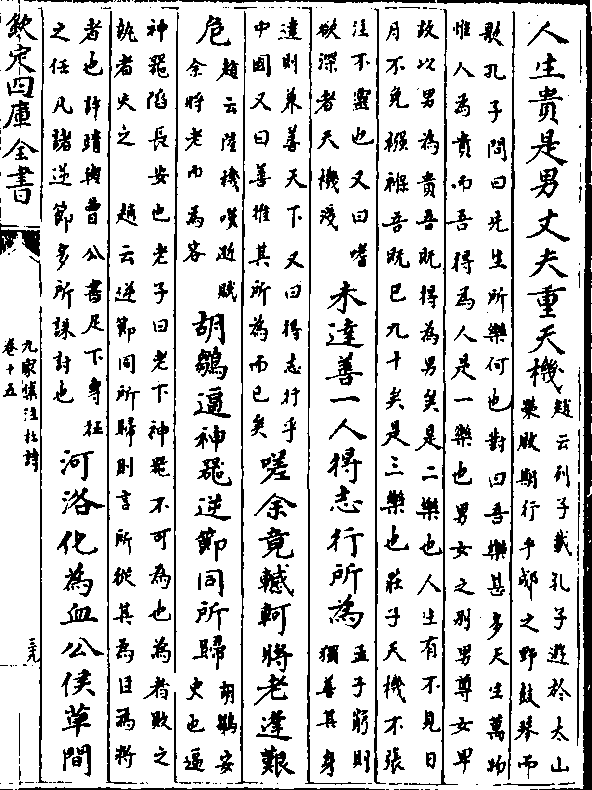 人生貴是男丈夫重天機
趙云列子載孔子遊於太山
榮啟期行乎郕之野鼓琴而
歌孔子問曰先生所樂何也對曰吾樂甚多天生萬物
惟人為貴而吾得為人是一樂也男女之別男尊女卑
故以男為貴吾既得為男矣是二樂也人生有不見日
月不免襁褓吾既已九十矣是三樂也莊子天機不張
注不靈也又曰嗜
欲深者天機淺
未達善一人得志行所為
孟子窮則
獨善其身
達則兼善天下又曰得志行乎
中國又曰善推其所為而已矣
嗟余竟轗軻將老逢艱
危
趙云陸機嘆逝賦
余將老而為客
胡雛逼神器逆節同所歸
胡雛安
史也逼
神器陷長安也老子曰老下神器不可為也為者敗之
執者失之 趙云逆節同所歸則言所從其為臣為將
者也許靖與曹公書足下專征
之任凡諸逆節多所誅討也
河洛化為血公侯草間
欽定四庫全書
九家集注杜詩
卷十五